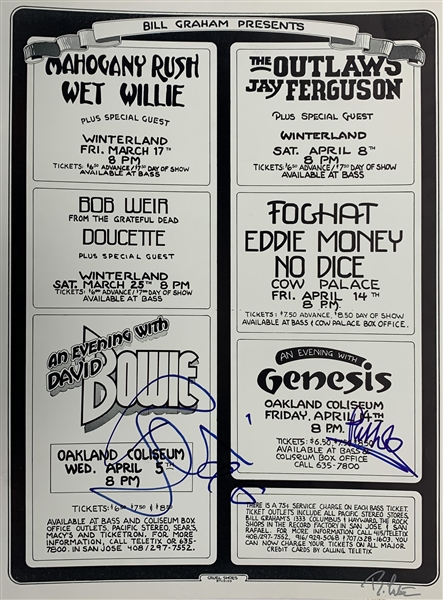 BILL GRAHAM PRESENTS
MAHOGANY RUSH
WET WILLIE
PLUS SPECIAL GUEST
WINTERLAND
FRI. MARCH 17TH
8 PM
TICKETS: $6.50 ADVANCE/$7.50 DAY OF SHOW
AVAILABLE AT BASS
BOB WEIR
FROM THE GRATEFUL DEAD
DOUCETTE
PLUS SPECIAL GUEST
WINTERLAND
SAT. MARCH 25TH 8 PM
TICKETS: $6.00 ADVANCE/$7.00 DAY OF SHOW
AVAILABLE AT BASS
AN EVENING WITH
DAVID
BOWIE
OAKLAND COLISEUM
WED. APRIL 5TH
8 PM
TICKETS: $6.50 $7.50 & $8.50
AVAILABLE AT BASS AND COLISEUM BOX
OFFICE OUTLETS. PACIFIC STEREO, SEARS,
MACY'S AND TICKETRON. FOR MORE
INFORMATION, CALL TELETIX OR 635-
7800. IN SAN JOSE 408/297-7552.
THE OUTLAWS
JAY FERGUSON
PLUS SPECIAL GUEST
WINTERLAND
SAT. APRIL 8TH
8 PM
TICKETS: $6.50 ADVANCE/$7.50 DAY OF SHOW
AVAILABLE AT BASS
FOGHAT
EDDIE MONEY
NO DICE
COW PALACE
FRI. APRIL 14TH
8 PM
TICKETS: $7.50 ADVANCE, $8.50 DAY OF SHOW
AVAILABLE AT BASS & COW PALACE BOX OFFICE.
AN EVENING WITH
Genesis
OAKLAND COLISEUM
FRIDAY, APRIL 14TH
8 PM
TICKETS: $6.50, $7.50, 8.50
AVAILABLE AT BASS &
COLISEUM BOX OFFICE
CALL 635-7800
THERE IS A 75¢ SERVICE CHARGE ON EACH BASS TICKET.
TICKET OUTLETS INCLUDE ALL PACIFIC STEREO STORES,
BILL GRAHAM'S 1333 COLUMBUS & HAYWARD, THE ROCK
SHOPS IN THE RECORD FACTORY IN SAN JOSE &
SAN RAFAEL. FOR MORE INFORMATION CALL 415/TELETIX
408/297-7552, 916/929-5068 & 707/528-1603. YOU
CAN NOW CHARGE YOUR TICKETS ON ALL MAJOR
CREDIT CARDS BY CALLING TELETIX